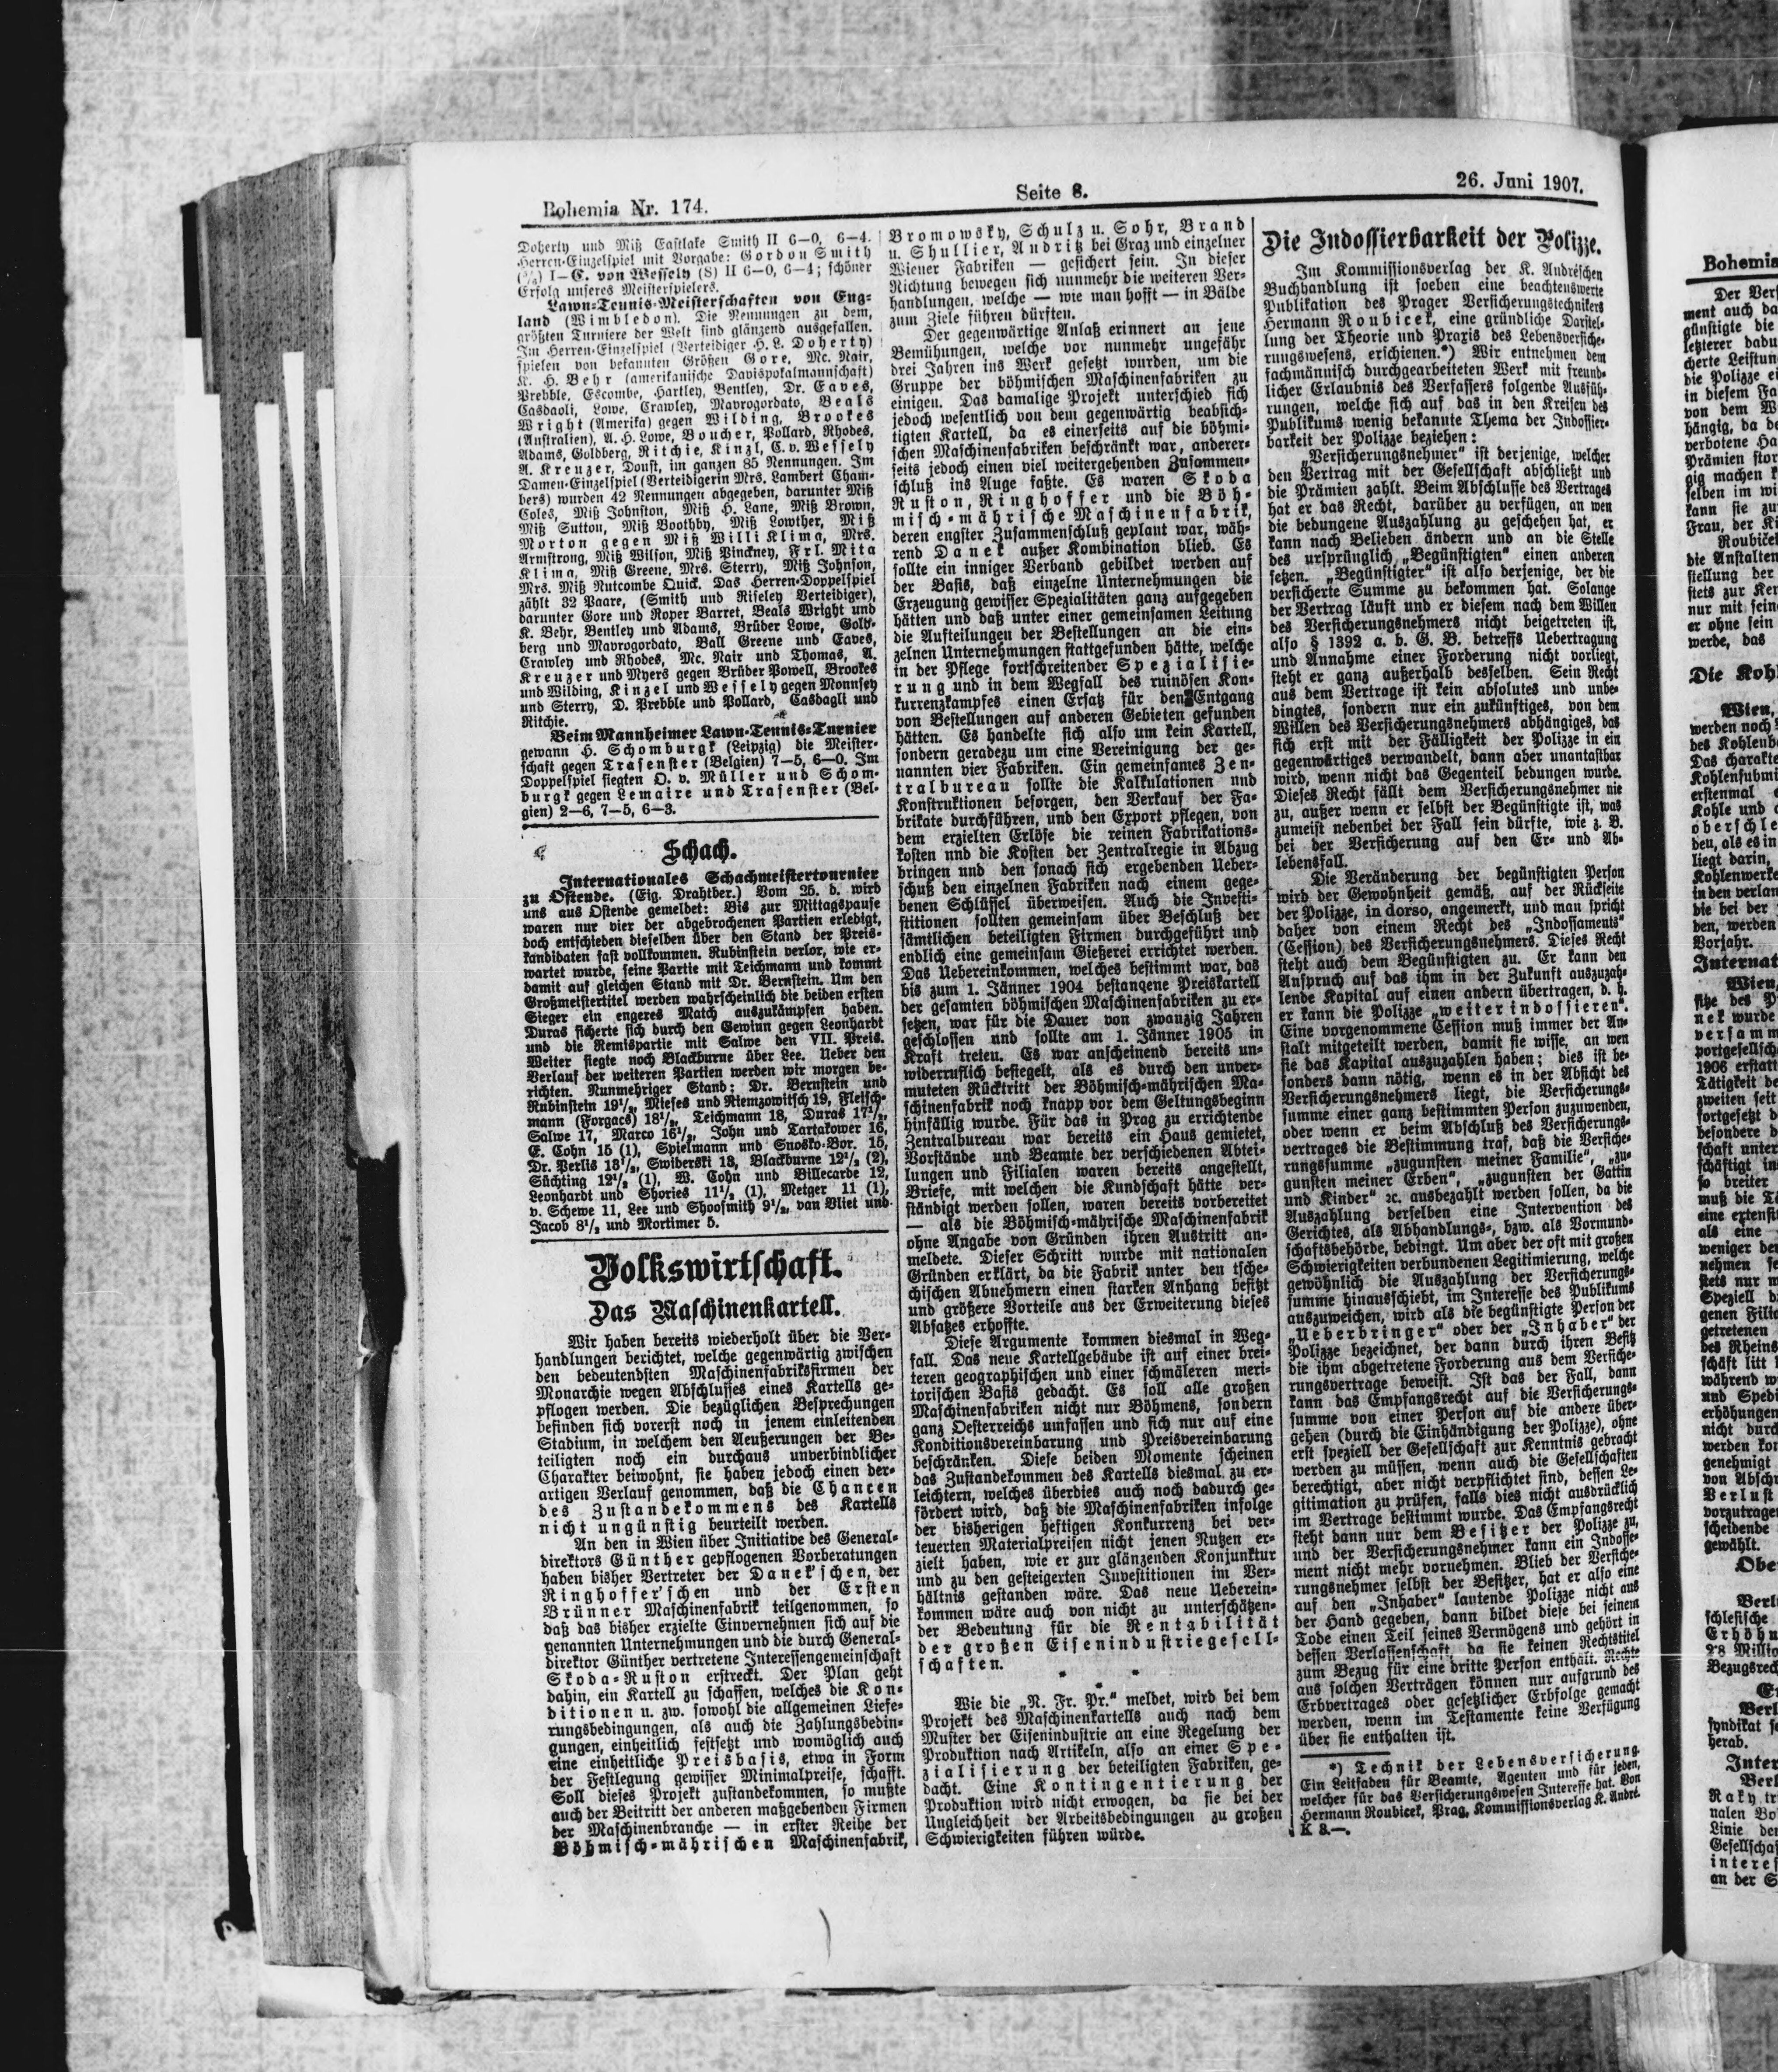 Bohemia Nr. 174.
Seite 8.
26. Juni 1907.
Doherty und Miß Eastlake Smith II 6—0, 6—4.
Herren-Einzelspiel mit Vorgabe: Gordon Smith
I—C. von Wessely (8) II 6—0, 6—4; schöner
Erfolg unseres Meisterspielers.
Lawn-Tennis-Meisterschaften von Eng-
land (Wimbledon). Die Nennungen zu dem,
größten Turniere der Welt sind glänzend ausgefallen.
Im Herren-Einzelspiel (Verteidiger H. L. Doherty)
spielen von bekannten Größen Gore, Mc. Nair,
K. H. Behr (amerikanische Davispokalmannschaft)
Prebble, Escombe, Hartley, Bentley, Dr. Eaves,
Casdagli, Lowe, Crawley, Mavrogordato, Beals
Wright (Amerika) gegen Wilding, Brookes
(Australien), A. H. Lowe, Boucher, Pollard, Rhodes,
Adams, Goldberg, Ritchie, Kinzl, C. v. Wessely
A. Kreuzer, Doust, im ganzen 85 Nennungen. Im
Damen-Einzelspiel (Verteidigerin Mrs. Lambert Cham-
bers) wurden 42 Nennungen abgegeben, darunter Miß
Coles, Miß Johnston, Miß H. Lane, Miß Brown,
Miß Sutton, Miß Boothby, Miß Lowther, Miß
Morton gegen Miß Willi Klima, Mrs.
Armstrong, Miß Wilson, Miß Pinckney, Frl. Mita
Klima, Miß Greene, Mrs. Sterry, Miß Johnson,
Mrs. Miß Nutcombe Quick. Das Herren-Doppelspiel
zählt 32 Paare, (Smith und Riseley Verteidiger),
darunter Gore und Roper Barret, Beals Wright und
K. Behr, Bentley und Adams, Brüder Lowe, Gold-
berg und Mavrogordato, Ball Greene und Eaves,
Crawley und Rhodes, Mc. Nair und Thomas, A.
Kreuzer und Myers gegen Brüder Powell, Brookes
und Wilding, Kinzel und Wessely gegen Monnsey
und Sterry, D. Prebble und Pollard, Casdagli und
Ritchie.
Beim Mannheimer Lawn-Tennis-Turnier
gewann H. Schomburgk (Leipzig) die Meister-
schaft gegen Trasenster (Belgien) 7—5, 6—0. Im
Doppelspiel siegten O. v. Müller und Schom-
burgk gegen Lemaire und Trasenster (Bel-
gien) 2—6, 7—5, 6—3.
Schach.
Internationales Schachmeistertournier
zu Ostende. (Eig. Drahtber.) Vom 25. d. wird
uns aus Ostende gemeldet: Bis zur Mittagspause
waren nur vier der abgebrochenen Partien erledigt,
doch entschieden dieselben über den Stand der Preis-
kandidaten fast vollkommen. Rubinstein verlor, wie er-
wartet wurde, seine Partie mit Teichmann und kommt
damit auf gleichen Stand mit Dr. Bernstein. Um den
Großmeistertitel werden wahrscheinlich die beiden ersten
Sieger ein engeres Match auszukämpfen haben.
Duras sicherte sich durch den Gewinn gegen Leonhardt
und die Remispartie mit Salwe den VII. Preis.
Weiter siegte noch Blackburne über Lee. Ueber den
Verlauf der weiteren Partien werden wir morgen be-
richten. Nunmehriger Stand: Dr. Bernstein und
Rubinstein 19½, Mieses und Niemzowitsch 19, Fleisch-
mann (Forgacs) 18½, Teichmann 18, Duras 17½,
Salwe 17, Marco 16½, John und Tartakower 16,
E. Cohn 15 (1), Spielmann und Snosko-Bor. 15,
Dr. Perlis 13½, Swiderski 13, Blackburne 12½ (2),
Süchting 12½ (1), W. Cohn und Billecarde 12,
Leonhardt und Shories 11½ (1), Metger 11 (1),
v. Scheve 11, Lee und Shoosmith 9½, van Vliet und
Jacob 8½ und Mortimer 5.
Volkswirtschaft.
Das Maschinenkartell.
Wir haben bereits wiederholt über die Ver-
handlungen berichtet, welche gegenwärtig zwischen
den bedeutendsten Maschinenfabriksfirmen der
Monarchie wegen Abschlusses eines Kartells ge-
pflogen werden. Die bezüglichen Besprechungen
befinden sich vorerst noch in jenem einleitenden
Stadium, in welchem den Aeußerungen der Be-
teiligten noch ein durchaus unverbindlicher
Charakter beiwohnt, sie haben jedoch einen der-
artigen Verlauf genommen, daß die Chancen
des Zustandekommens des Kartells
nicht ungünstig beurteilt werden.
An den in Wien über Initiative des General-
direktors Günther gepflogenen Vorberatungen
haben bisher Vertreter der Danek'schen, der
Ringhoffer'schen und der Ersten
Brünner Maschinenfabrik teilgenommen, so
daß das bisher erzielte Einvernehmen sich auf die
genannten Unternehmungen und die durch General-
direktor Günther vertretene Interessengemeinschaft
Skoda-Ruston erstreckt. Der Plan geht
dahin, ein Kartell zu schaffen, welches die Kon-
ditionen u. zw. sowohl die allgemeinen Liefe-
rungsbedingungen, als auch die Zahlungsbedin-
gungen, einheitlich festsetzt und womöglich auch
eine einheitliche Preisbasis, etwa in Form
der Festlegung gewisser Minimalpreise, schafft.
Soll dieses Projekt zustandekommen, so müßte
auch der Beitritt der anderen maßgebenden Firmen
der Maschinenbranche — in erster Reihe der
Böhmisch-mährischen Maschinenfabrik,
Bromowsky, Schulz u. Sohr, Brand
u. Shullier, Andritz bei Graz und einzelner
Wiener Fabriken — gesichert sein. In dieser
Richtung bewegen sich nunmehr die weiteren Ver-
handlungen, welche — wie man hofft — in Bälde
zum Ziele führen dürften.
Der gegenwärtige Anlaß erinnert an jene
Bemühungen, welche vor nunmehr ungefähr
drei Jahren ins Werk gesetzt wurden, um die
Gruppe der böhmischen Maschinenfabriken zu
einigen. Das damalige Projekt unterschied sich
jedoch wesentlich von dem gegenwärtig beabsich-
tigten Kartell, da es einerseits auf die böhmi-
schen Maschinenfabriken beschränkt war, anderer-
seits jedoch einen viel weitergehenden Zusammen-
schluß ins Auge faßte. Es waren Skoda
Ruston, Ringhoffer und die Böh-
misch-mährische Maschinenfabrik,
deren engster Zusammenschluß geplant war, wäh-
rend Danek außer Kombination blieb. Es
sollte ein inniger Verband gebildet werden auf
der Basis, daß einzelne Unternehmungen die
Erzeugung gewisser Spezialitäten ganz aufgegeben
hätten und daß unter einer gemeinsamen Leitung
die Aufteilungen der Bestellungen an die ein-
zelnen Unternehmungen stattgefunden hätte, welche
in der Pflege fortschreitender Spezialisie-
rung und in dem Wegfall des ruinösen Kon-
kurrenzkampfes einen Ersatz für den Entgang
von Bestellungen auf anderen Gebieten gefunden
hätten. Es handelte sich also um kein Kartell,
sondern geradezu um eine Vereinigung der ge-
nannten vier Fabriken. Ein gemeinsames Zen-
tralbureau sollte die Kalkulationen und
Konstruktionen besorgen, den Verkauf der Fa-
brikate durchführen, und den Export pflegen, von
dem erzielten Erlöse die reinen Fabrikations-
kosten nnd die Kosten der Zentralregie in Abzug
bringen und den sonach sich ergebenden Ueber-
schuß den einzelnen Fabriken nach einem gege-
benen Schlüssel überweisen. Auch die Investi-
stitionen sollten gemeinsam über Beschluß der
sämtlichen beteiligten Firmen durchgeführt und
endlich eine gemeinsam Gießerei errichtet werden.
Das Uebereinkommen, welches bestimmt war, das
bis zum 1. Jänner 1904 bestandene Preiskartell
der gesamten böhmischen Maschinenfabriken zu er-
setzen, war für die Dauer von zwanzig Jahren
geschlossen und sollte am 1. Jänner 1905 in
Kraft treten. Es war anscheinend bereits un-
widerruflich besiegelt, als es durch den unver-
muteten Rücktritt der Böhmisch-mährischen Ma-
schinenfabrik noch knapp vor dem Geltungsbeginn
hinfällig wurde. Für das in Prag zu errichtende
Zentralbureau war bereits ein Haus gemietet,
Vorstände und Beamte der verschiedenen Abtei-
lungen und Filialen waren bereits angestellt,
Briefe, mit welchen die Kundschaft hätte ver-
ständigt werden sollen, waren bereits vorbereitet
— als die Böhmisch-mährische Maschinenfabrik
ohne Angabe von Gründen ihren Austritt an-
meldete. Dieser Schritt wurde mit nationalen
Gründen erklärt, da die Fabrik unter den tsche-
chischen Abnehmern einen starken Anhang besitzt
und größere Vorteile aus der Erweiterung dieses
Absatzes erhoffte.
Diese Argumente kommen diesmal in Weg-
fall. Das neue Kartellgebäude ist auf einer brei-
teren geographischen und einer schmäleren meri-
torischen Basis gedacht. Es soll alle großen
Maschinenfabriken nicht nur Böhmens, sondern
ganz Oesterreichs umfassen und sich nur auf eine
Konditionsvereinbarung und Preisvereinbarung
beschränken. Diese beiden Momente scheinen
das Zustandekommen des Kartells diesmal zu er-
leichtern, welches überdies auch noch dadurch ge-
fördert wird, daß die Maschinenfabriken infolge
der bisherigen heftigen Konkurrenz bei ver-
teuerten Materialpreisen nicht jenen Nutzen er-
zielt haben, wie er zur glänzenden Konjunktur
und zu den gesteigerten Investitionen im Ver-
hältnis gestanden wäre. Das neue Ueberein-
kommen wäre auch von nicht zu unterschätzen-
der Bedeutung für die Rentabilität
der großen Eisenindustriegesell-
schaften.
* * *
Wie die „N. Fr. Pr.“ meldet, wird bei dem
Projekt des Maschinenkartells auch nach dem
Muster der Eisenindustrie an eine Regelung der
Produktion nach Artikeln, also an einer Spe-
zialisierung der beteiligten Fabriken, ge-
dacht. Eine Kontingentierung der
Produktion wird nicht erwogen, da sie bei der
Ungleichheit der Arbeitsbedingungen zu großen
Schwierigkeiten führen würde.
Die Indossierbarkeit der Polizze.
Im Kommissionsverlag der K. Andréschen
Buchhandlung ist soeben eine beachtenswerte
Publikation des Prager Versicherungstechnikers
Hermann Roubicek, eine gründliche Darstel-
lung der Theorie und Praxis des Lebensversiche-
rungswesens, erschienen.*) Wir entnehmen dem
fachmännisch durchgearbeiteten Werk mit freund-
licher Erlaubnis des Verfassers folgende Ausfüh-
rungen, welche sich auf das in den Kreisen des
Publikums wenig bekannte Thema der Indossier-
barkeit der Polizze beziehen:
„Versicherungsnehmer“ ist derjenige, welcher
den Vertrag mit der Gesellschaft abschließt und
die Prämien zahlt. Beim Abschlusse des Vertrages
hat er das Recht, darüber zu verfügen, an wen
die bedungene Auszahlung zu geschehen hat, er
kann nach Belieben ändern und an die Stelle
des ursprünglich „Begünstigten“ einen anderen
setzen. „Begünstigter“ ist also derjenige, der die
versicherte Summe zu bekommen hat. Solange
der Vertrag läuft und er diesem nach dem Willen
des Versicherungsnehmers nicht beigetreten ist,
also § 1392 a. b. G. B. betreffs Uebertragung
und Annahme einer Forderung nicht vorliegt,
steht er ganz außerhalb desselben. Sein Recht
aus dem Vertrage ist kein absolutes und unbe-
dingtes, sondern nur ein zukünftiges, von dem
Willen des Versicherungsnehmers abhängiges, das
sich erst mit der Fälligkeit der Polizze in ein
gegenwärtiges verwandelt, dann aber unantastbar
wird, wenn nicht das Gegenteil bedungen wurde.
Dieses Recht fällt dem Versicherungsnehmer nie
zu, außer wenn er selbst der Begünstigte ist, was
zumeist nebenbei der Fall sein dürfte, wie z. B.
bei der Versicherung auf den Er- und Ab-
lebensfall.
Die Veränderung der begünstigten Person
wird der Gewohnheit gemäß, auf der Rückseite
der Polizze, in dorso, angemerkt, und man spricht
daher von einem Recht des „Indossaments“
(Cession), des Versicherungsnehmers. Dieses Recht
steht auch dem Begünstigten zu. Er kann den
Anspruch auf das ihm in der Zukunft auszuzah-
lende Kapital auf einen andern übertragen, d. h.
er kann die Polizze „weiter indossieren“.
Eine vorgenommene Cession muß immer der An-
stalt mitgeteilt werden, damit sie wisse, an wen
sie das Kapital auszuzahlen haben; dies ist be-
sonders dann nötig, wenn es in der Absicht des
Versicherungsnehmers liegt, die Versicherungs-
summe einer ganz bestimmten Person zuzuwenden,
oder wenn er beim Abschluß des Versicherungs-
vertrages die Bestimmung traf, daß die Versiche-
rungssumme „zugunsten meiner Familie“, „zu-
gunsten meiner Erben“, „zugunsten der Gattin
und Kinder“ ꝛc. ausbezahlt werden sollen, da die
Auszahlung derselben eine Intervention des
Gerichtes, als Abhandlungs-, bzw. als Vormund-
schaftsbehörde, bedingt. Um aber der oft mit großen
Schwierigkeiten verbundenen Legitimierung, welche
gewöhnlich die Auszahlung der Versicherungs-
summe hinausschiebt, im Interesse des Publikums
auszuweichen, wird als die begünstigte Person der
„Ueberbringer“ oder der „Inhaber“ der
Polizze bezeichnet, der dann durch ihren Besitz
die ihm abgetretene Forderung aus dem Versiche-
rungsvertrage beweist. Ist das der Fall, dann
kann das Empfangsrecht auf die Versicherungs-
summe von einer Person auf die andere über-
gehen (durch die Einhändigung der Polizze), ohne
erst speziell der Gesellschaft zur Kenntnis gebracht
werden zu müssen, wenn auch die Gesellschaften
berechtigt, aber nicht verpflichtet sind, dessen Le-
gitimation zu prüfen, falls dies nicht ausdrücklich
im Vertrage bestimmt wurde. Das Empfangsrecht
steht dann nur dem Besitzer der Polizze zu,
und der Versicherungsnehmer kann ein Indosse-
ment nicht mehr vornehmen. Blieb der Versiche-
rungsnehmer selbst der Besitzer, hat er also eine
auf den „Inhaber“ lautende Polizze nicht aus
der Hand gegeben, dann bildet diese bei seinem
Tode einen Teil seines Vermögens und gehört in
dessen Verlassenschaft, da sie keinen Rechtstitel
zum Bezug für eine dritte Person enthält. Rechte
aus solchen Verträgen können nur aufgrund des
Erbvertrages oder gesetzlicher Erbfolge gemacht
werden, wenn im Testamente keine Verfügung
über sie enthalten ist.
*) Technik der Lebensversicherung.
Ein Leitfaden für Beamte, Agenten und für jeden,
welcher für das Versicherungswesen Interesse hat. Von
Hermann Roubicek, Prag, Kommissionsverlag K. André.
K 3.—.
Bohemia
Der Ver
ment auch da
günstigte die
letzterer dadu
cherte Leistun
die Polizze ei
in diesem Fa
von dem W
hängig, da de
verbotene Ha
Prämien stor
gig machen k
selben im wi
kann sie zu
Frau, der Ki
Roubiček
die Anstalten
stellung der
stets zur Ken
nur mit sein
er ohne sein
werde, das
Die Koh
Wien,
werden noch
des Kohlenb
Das charakte
Kohlensubmi
erstenmal
Kohle und
oberschle
den, als es in
liegt darin,
Kohlenwerke
in den verlan
die bei der
den, werden
Vorjahr.
Internat
Wien,
sitze des P
nek wurde
versamm
portgesellsch
1906 erstatt
Tätigkeit de
zweiten seit
fortgesetzt d
besondere d
schaft unter
schäftigt in
so breiter
muß die Tä
eine extensi
als eine
weniger de
nehmen se
stets nur m
Speziell d
genen Filia
getretenen
des Rheins
schäft litt
während w
und Spedi
erhöhungen
nicht durch
werden kon
genehmigt
von Abschr
Verlust
vorzutrage
scheidende
gewählt.
Obe
Berl
schlesische
Erhöhu
2·8 Millio
Bezugsrech
Berl
syndikat
herab.
Inter
Berl
Raky tr
nalen Bo
Linie de
Gesellscha
interes
an der S